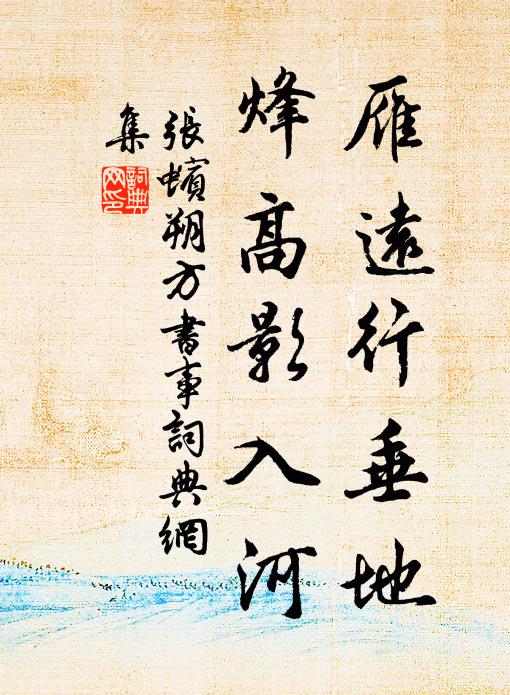 雁遠行垂地
烽高影入河
張蠙朔方書事詞典網
集
詞典
网印